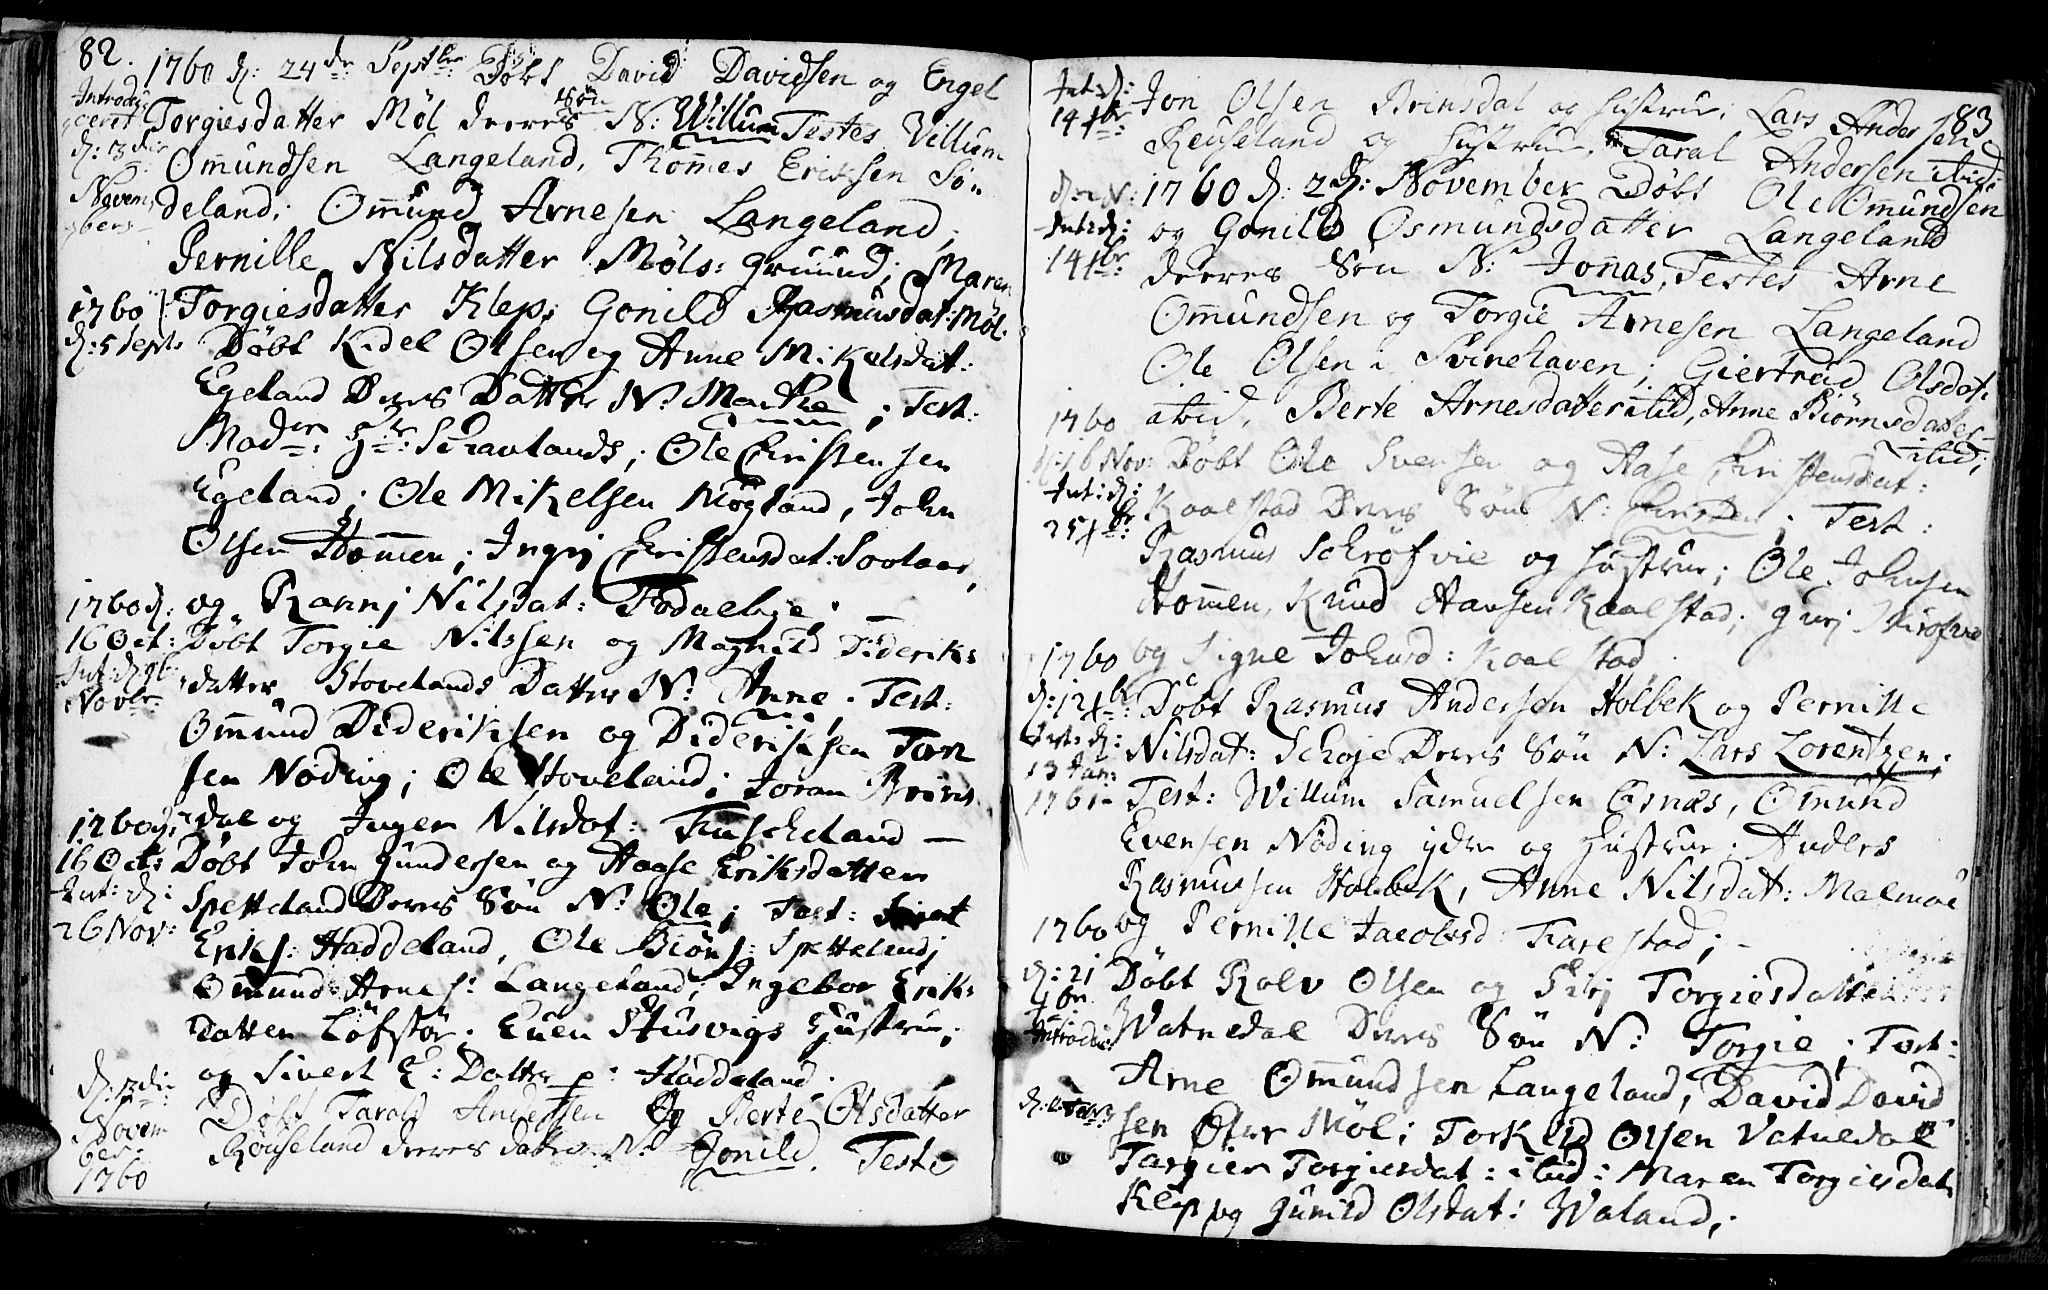 82.
1760 d: 24de Septbr: Døbt David Davidsen og Engel
Introdu
ceret
d: 13de
Novem
bers
Torgiesdatter Møl deeres Søn N: Willum Testes Villum
Omundsen Langeland, Thommes Eriksen Søn
deland; Omund Arnesen Langeland;
Pernille Nilsdatter Møls: gruund; Maren
Torgiesdatter Klep; Gonild Rasmusdat: Møl:
1760
d: 5 Septr
Døbt Kidel Olsen og Anne Mikelsdat:
Egeland Deres Datter N: Marthe; Test:
Madm: Hr: Schavlands; Ole Christensen
Egeland; Ole Mikelsen Møgland, John
Olsen Hommen; Ingrj Christensdat: Soolaas,
og Rannj Nilsdat: Fodaebye; —
1760 d:
16 Oct:
Int: d: 9b
Novbr:
Døbt Torgie Nilssen og Magnild Dideriks
datter Stovelands Datter N: Anne. Test:
Omund Dideriksen og Dideriksen Torn
sen Nøding; Ole Stoveland; Joran Brins
dal og Inger Nilsdat: Fuscheland —
1760 d:
16 Oct:
Int: d:
26 Nov:
Døbt John Gundersen og Aaase Eriksdatter
Spetteland Deres Søn N: Ole; Test: Sivert
Eriks: Haddeland, Ole Biøns: Spetteland;
Omund Arnes: Langeland; Ingebor Eriks
Datter Løfstør; Euen Stusvigs Hustrue;
og Sivert E: Datter p: Haddeland.
d: 2de
Novem
ber
1760
Døbt Tarald Andersen Og Berte Olsdatter
Røuseland deeres datter N: Gonild. Teste
83
Int: d:
14 xbr:
Jon Olsen Brinsdal og hustrue; Lars Andersen
Reuseland og hustrue, Taral Andersen ibid;
1760 d: 2de: November Døbt Ole Omundsen
Int: d:
14 xbr:
og Gonild Osmundsdatter Langeland
deeres Søn N: Jonas, Testes Arne
Omundsen og Torgie Arnesen Langeland
Ole Olsen i Svinehaven; Giertrud Olsdat:
ibid, Berte Arnesdatter ibid, Anne Biørnsdatter
ibid;
1760
d: 16 Nov:
Int: d:
25 xbr:
Døbt Ole Svensen og Aase Christensdat:
Kaalstad Deres Søn N: Christen; Test:
Rasmus Schrøfvie og hustrue; Ole Johnsen
Hommen, Knud Hansen Kaalstad; gurj Skrøfvie
og Signe Johnsd: Kaalstad
1760
d: 12 xbr:
Int: d:
13 Jan:
1761
Døbt Rasmus Andersen Holbek og Pernille
Nilsdat: Schoje Deres Søn N: Lars Lorentzen;
Test: Willum Samuelsen Osnæs, Omund
Evensen Nøding ydre og hustrue; Anders
Rasmussen Holbek, Anne Nilsdat: Malmoe
og Pernille Jacobsd: Farestad; —
1760
d: 21
xbr
Introdu:
Døbt Rolv Olsen og Sirj Torgiesdatter
Watnedal Deres Søn N: Torgie; Test:
Arne Omundsen Langeland, David David
sen Øfur Møl; Torkild Olsen Vatnedal
Torgier Torgiesdat: ibid: Maren Torgiesdat
Klep og Gunild Olsdat: Waland;